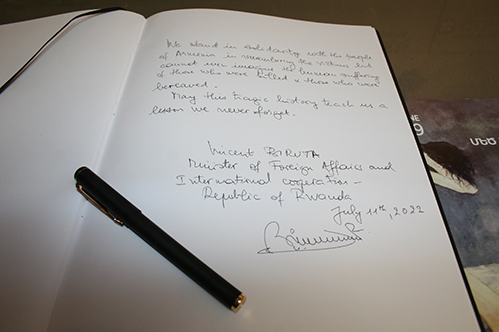 We stand in solidarity with the people
of Armenia in remembering the victims but
cannot even imagine the human suffering
of those who were killed & those who were
bereaved.
May this tragic history teach us a
lesson we never forget.
Vincent BIRUTA
Minister of Foreign Affairs and
International cooperation -
Republic of Rwanda
July 11th, 2022